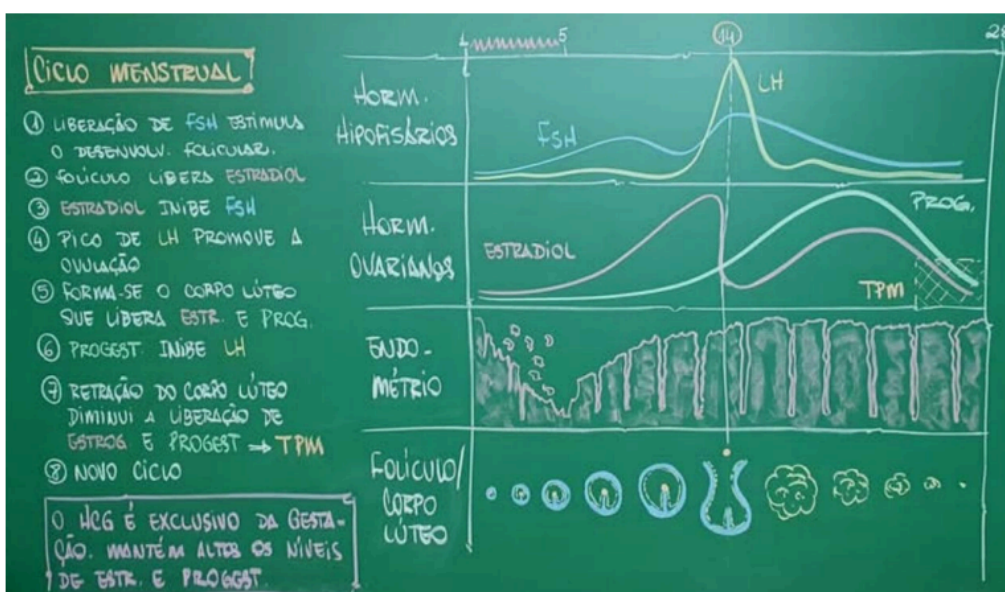 CICLO MENSTRUAL
① LIBERAÇÃO DE FSH ESTIMULA
O DESENVOLV. FOLICULAR.
② FOLÍCULO LIBERA ESTRADIOL
③ ESTRADIOL INIBE FSH
④ PICO DE LH PROMOVE A
OVULAÇÃO
⑤ FORMA-SE O CORPO LÚTEO
QUE LIBERA ESTR. E PROG.
⑥ PROGEST. INIBE LH
⑦ RETRAÇÃO DO CORPO LÚTEO
DIMINUI A LIBERAÇÃO DE
ESTROG E PROGEST → TPM
⑧ NOVO CICLO
O HCG É EXCLUSIVO DA GESTA-
ÇÃO. MANTÉM ALTOS OS NÍVEIS
DE ESTR. E PROGEST.
1 5 14 28
HORM.
HIPOFISÁRIOS
FSH
LH
HORM.
OVARIANOS
ESTRADIOL
PROG.
TPM
ENDO-
MÉTRIO
FOLÍCULO/
CORPO
LÚTEO